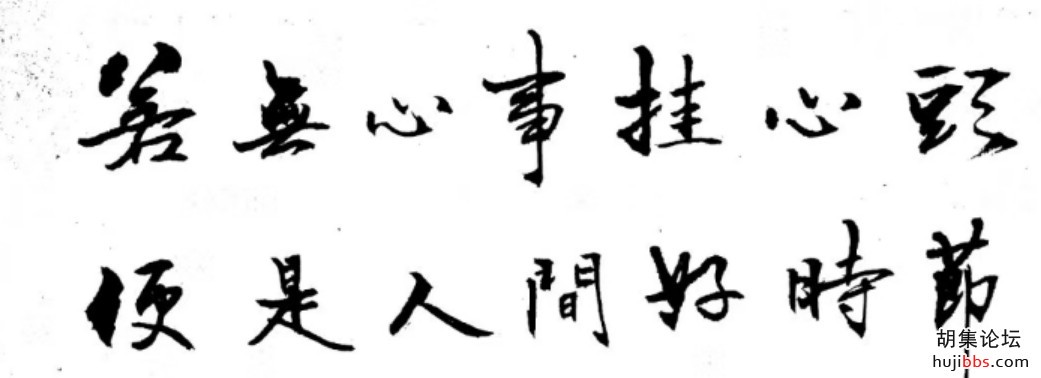 若無心事挂心頭
便是人間好時節
胡集论坛
hujibbs.com